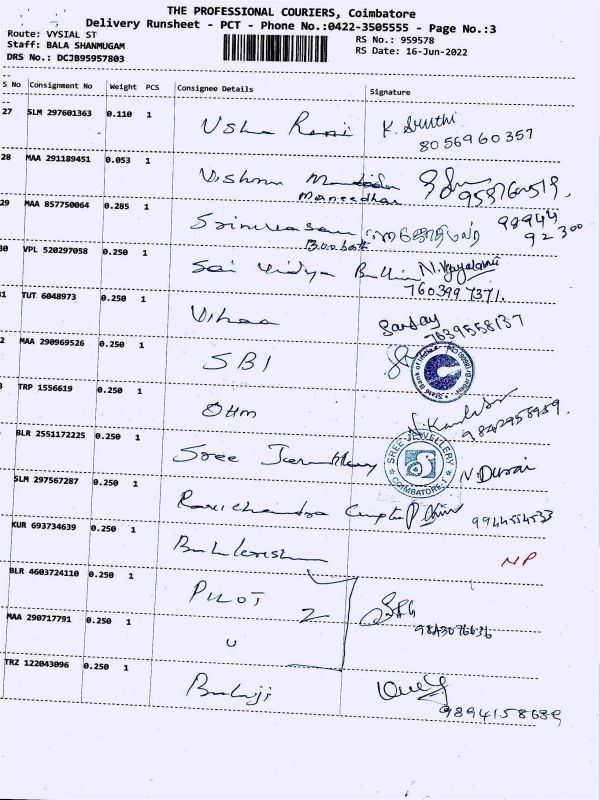 THE PROFESSIONAL COURIERS, Coimbatore
Delivery Runsheet - PCT - Phone No.:0422-3505555 - Page No.:3
Route: VYSIAL ST
RS No.: 959578
Staff: BALA SHANMUGAM
RS Date: 16-Jun-2022
DRS No.: DCJB95957803
S No Consignment No Weight PCS Consignee Details Signature
27 SLM 297601363 0.110 1 Usha Rani K. Sruthi
8056960357
28 MAA 291189451 0.053 1 Vishnu
29 MAA 857750064 0.285 1 Srinivasan 98944
92300
30 VPL 520297058 0.250 1 Sai Vidya
7603997371.
1 TUT 6048973 0.250 1
7639558137
2 MAA 290969526 0.250 1 SBI
State Bank of India
TRP 1556619 0.250 1 OHM
9842958959.
BLR 2551172225 0.250 1 Sree
SREE JEWELLERY
COIMBATORE-1
N. Durai
SLM 297567287 0.250 1 Ravichandra Gupta
9944554533
KUR 693734639 0.250 1
NP
BLR 4603724110 0.250 1 PILOT 2
9843076636
MAA 290717791 0.250 1 U
TRZ 122043096 0.250 1 Balaji
9894158689